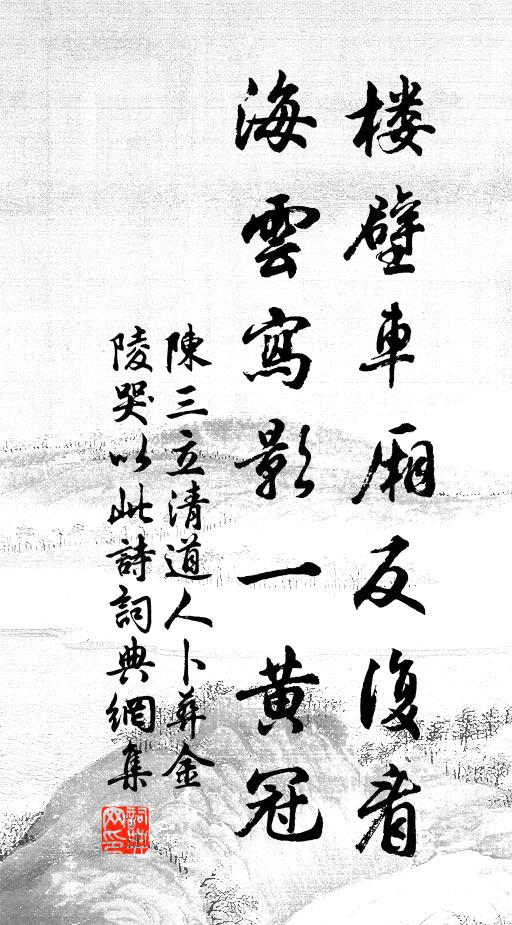 楼壁車廂反復看
海雲寫影一黃冠
陳三立清道人卜葬金
陵哭以此詩詞典網集